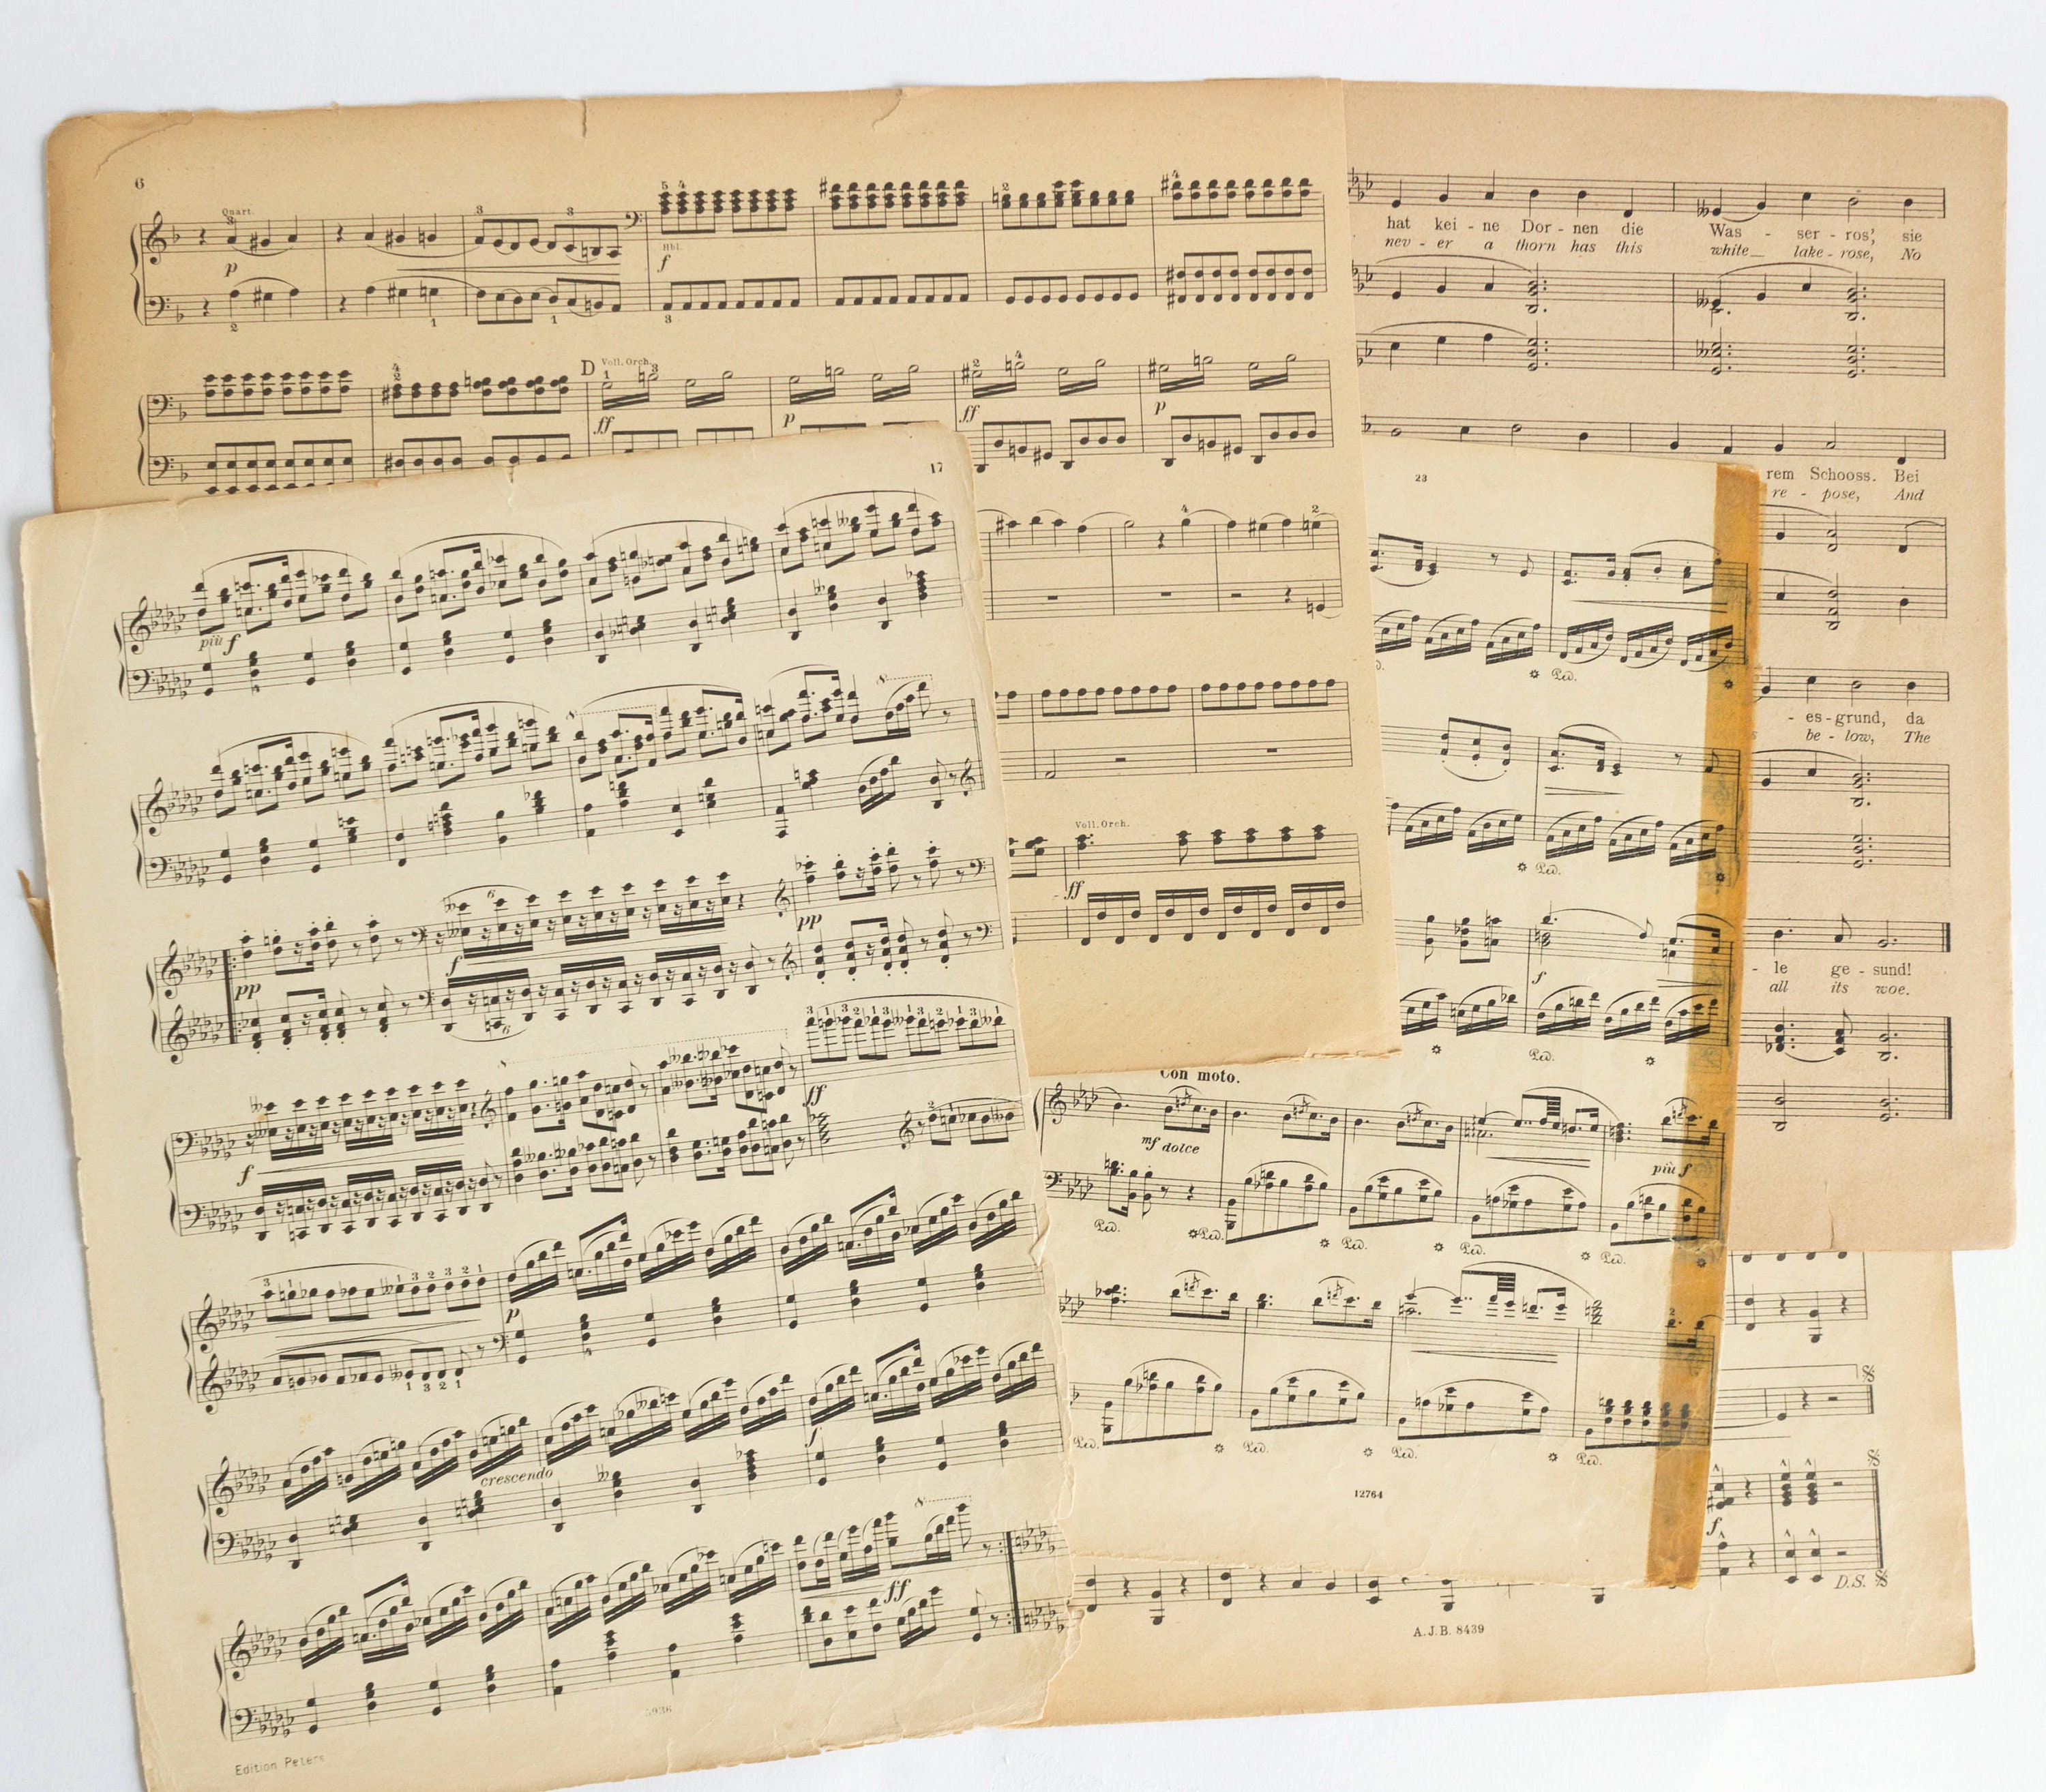 6
Quart.
p
Hbl.
f
D Voll. Orch.
ff
p
ff
p
Voll. Orch.
ff
hat kei - ne Dor - nen die Was - ser - ros', sie
nev - er a thorn has this white lake - rose, No
rem Schooss. Bei
re - pose, And
- es - grund, da
be - low, The
- le ge - sund!
all its woe.
17
più f
pp
f
pp
f
ff
p
crescendo
f
ff
Edition Peters
23
Ped.
Ped.
f
Ped.
Con moto.
mf dolce
più f
Ped. Ped. Ped. Ped. Ped.
Ped. Ped. Ped. Ped.
12764
f
D.S.
A. J. B. 8439